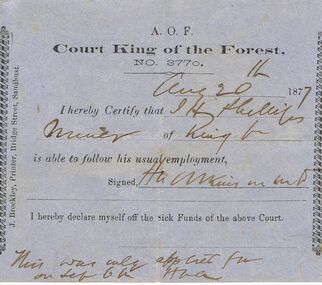 A. O. F.
Court King of the Forest,
NO. 3770.
Aug 20th 1877
I hereby Certify that J H Phillips
Miner of King
is able to follow his usual employment,
Signed,
I hereby declare myself off the Sick Funds of the above Court.
This was only applied for
on Sep 6th
J. Brockley, Printer, Bridge Street, Sandhurst.